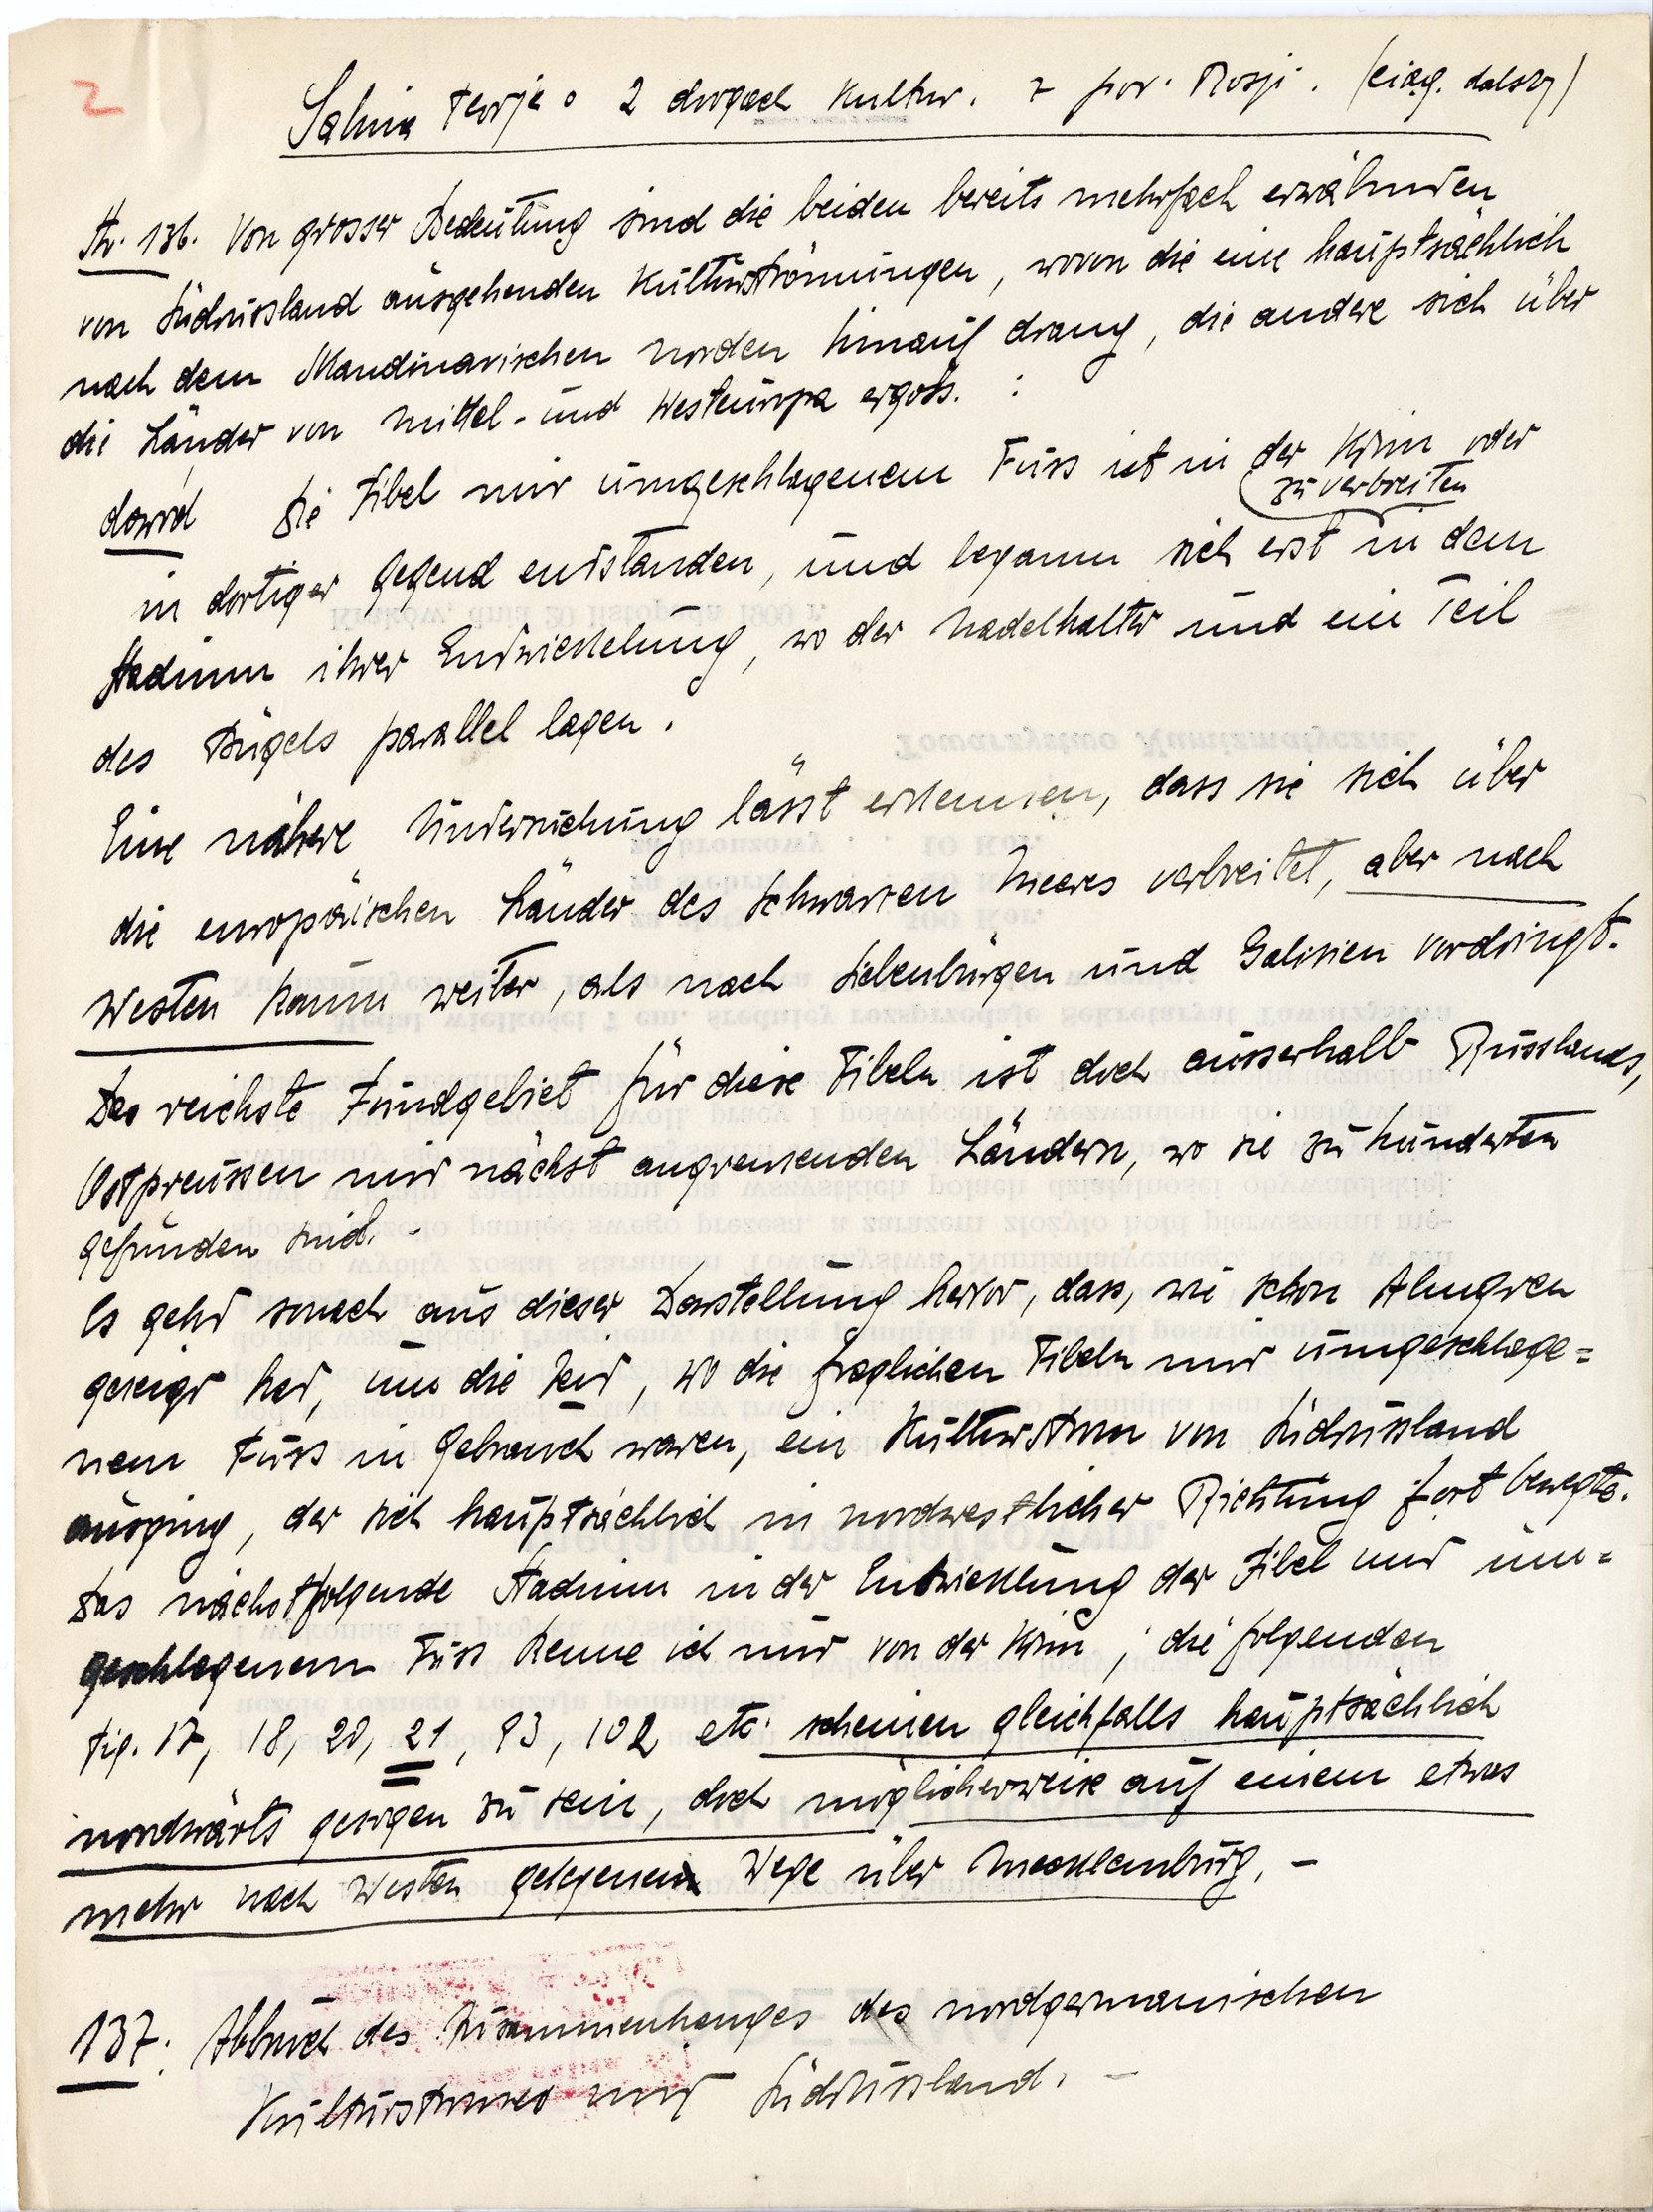 2
Salina teorja o 2 drogach kultur. z poł. Rosji. (ciąg. dalszy)
Str. 136. Von grosser Bedeutung sind die beiden bereits mehrfach erwähnten
von Südrussland ausgehenden Kulturströmungen, wovon die eine hauptsächlich
nach dem Skandinavischen Norden hinauf drang, die andere sich über
die Länder von Mittel- und Westeuropa ergoss. :
dowód Die Fibel mit umgeschlagenem Fuss ist in der Krim oder
zu verbreiten
in dortiger Gegend entstanden, und begann sich erst in dem
Stadium ihrer Entwickelung, wo der Nadelhalter und ein Teil
des Bügels parallel lagen.
Eine nähere Untersuchung lässt erkennen, dass sie sich über
die europäischen Länder des Schwarzen Meeres verbreitet, aber nach
Westen kaum weiter, als nach Siebenbürgen und Galizien vordringt.
Das reichste Fundgebiet für diese Fibeln ist doch ausserhalb Russlands,
Ostpreussen mit nächst angrenzenden Ländern, wo sie zu hunderten
gefunden sind. -
Es geht sonach aus dieser Darstellung hervor, dass, wie schon Almgren
gezeigt hat, um die Zeit, wo die fraglichen Fibeln mit umgeschlage=
nem Fuss in Gebrauch waren, ein Kulturstrom von Südrussland
ausging, der sich hauptsächlich in nordwestlicher Richtung fort bewegte.
Das nächstfolgende Stadium in der Entwicklung der Fibel mit um=
geschlagenem Fuss kenne ich nur von der Krim; die folgenden
Fig. 17, 18, 20, 21, 93, 102 etc. scheinen gleichfalls hauptsächlich
nordwärts gezogen zu sein, doch möglicherweise auf einem etwas
mehr nach Westen gelegenen Wege über Mecklenburg. -
137. Abbruch des Zusammenhanges des nordgermanischen
Kulturstromes mit Südrussland. -